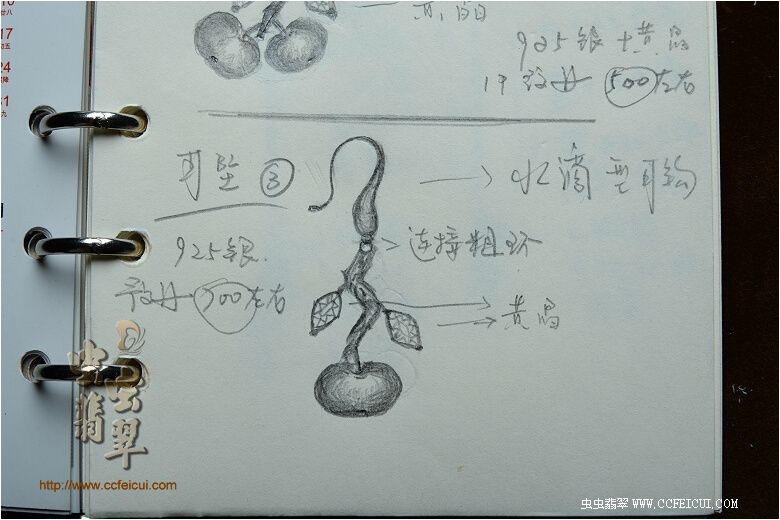 黄晶
925银+黄晶
500左右
耳坠③
925银
500左右
水滴型耳钩
连接粗环
黄晶
虫虫翡翠
http://www.ccfeicui.com
虫虫翡翠 WWW.CCFEICUI.COM
17
24
31